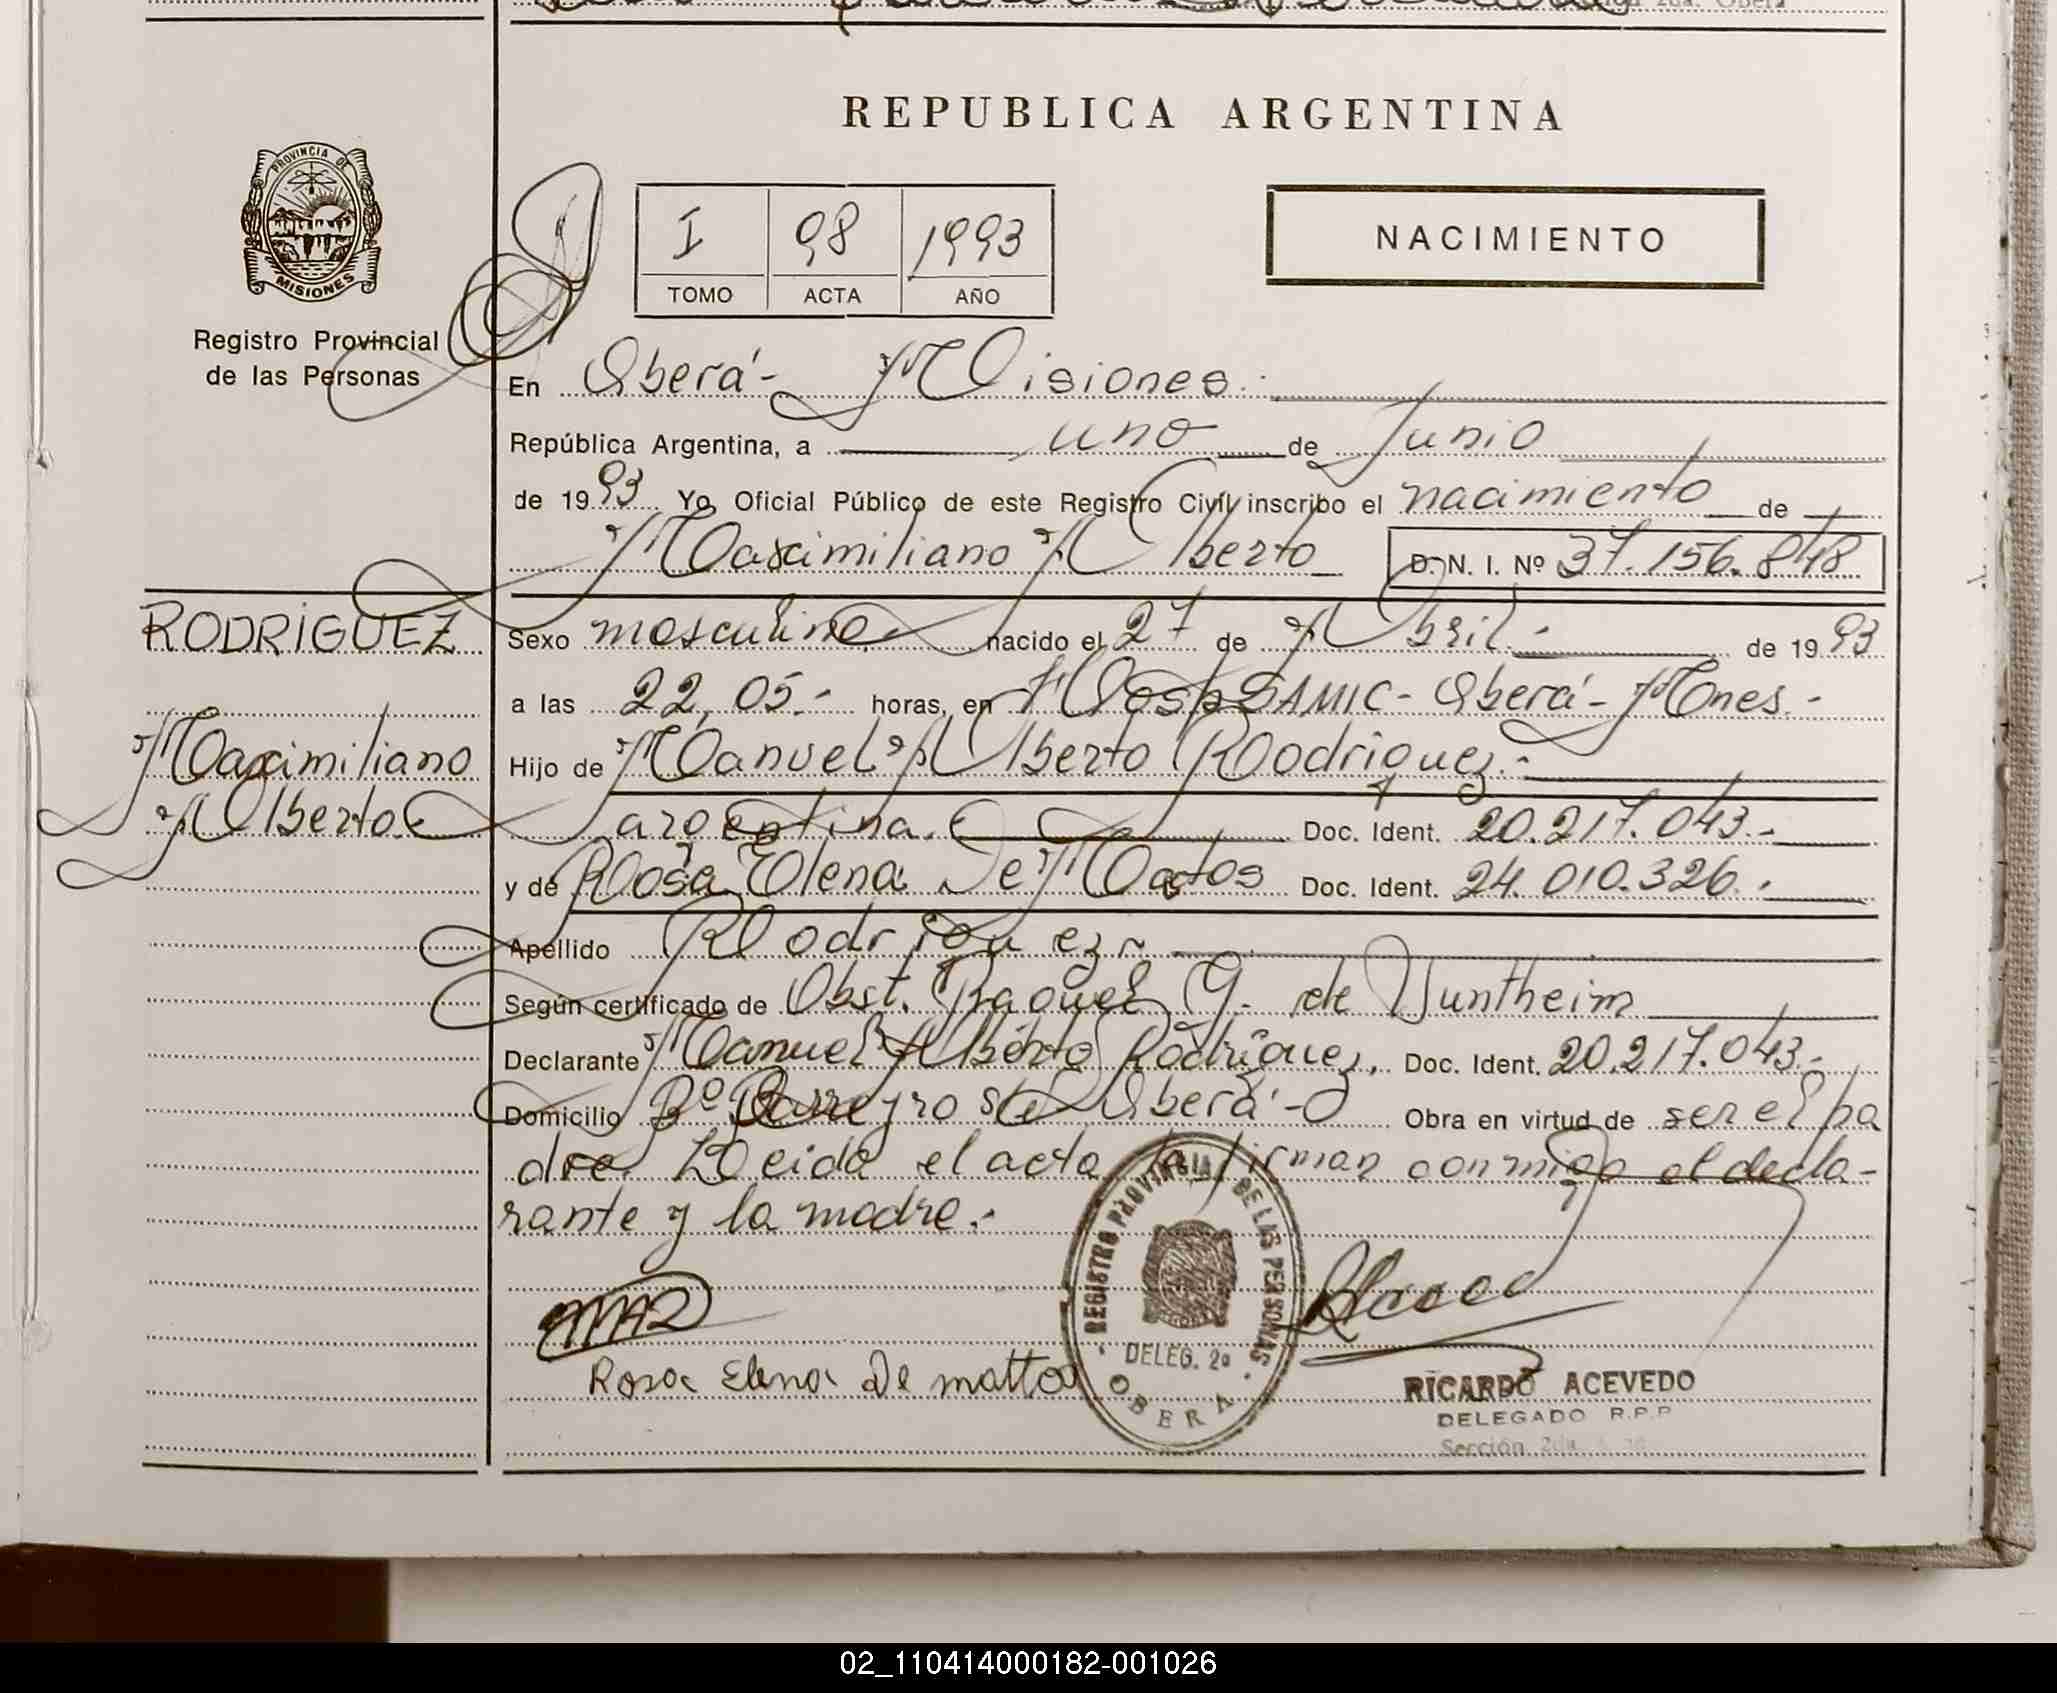 REPUBLICA ARGENTINA
PROVINCIA DE
MISIONES
Registro Provincial
de las Personas
I 98 1993
TOMO ACTA AÑO
NACIMIENTO
En Oberá - Misiones.
República Argentina, a uno de Junio
de 1993. Yo Oficial Público de este Registro Civil inscribo el nacimiento de
Maximiliano Alberto D. N. I. Nº 37.156.848
RODRIGUEZ
Maximiliano
Alberto
Sexo masculino nacido el 27 de Abril.- de 1993
a las 22,05.- horas, en Hosp SAMIC - Oberá - Mones.-
Hijo de Manuel Alberto Rodriguez.-
argentina. Doc. Ident. 20.217.043.-
y de Rosa Elena De Mattos Doc. Ident. 24.010.326.
Apellido Rodriguez.
Según certificado de Obst. Raquel G. de Vuntheim
Declarante Manuel Alberto Rodriguez, Doc. Ident. 20.217.043.-
Domicilio Bº Barreyro Oberá - Obra en virtud de ser el pa
dre. Leida el acta la firman conmigo el decla-
rante y la madre.-
Rosa Elena De mattos
REGISTRO PROVINCIAL DE LAS PERSONAS
DELEG. 2a
OBERA
RICARDO ACEVEDO
DELEGADO R.P.P.
Sección 2da.
02_110414000182-001026